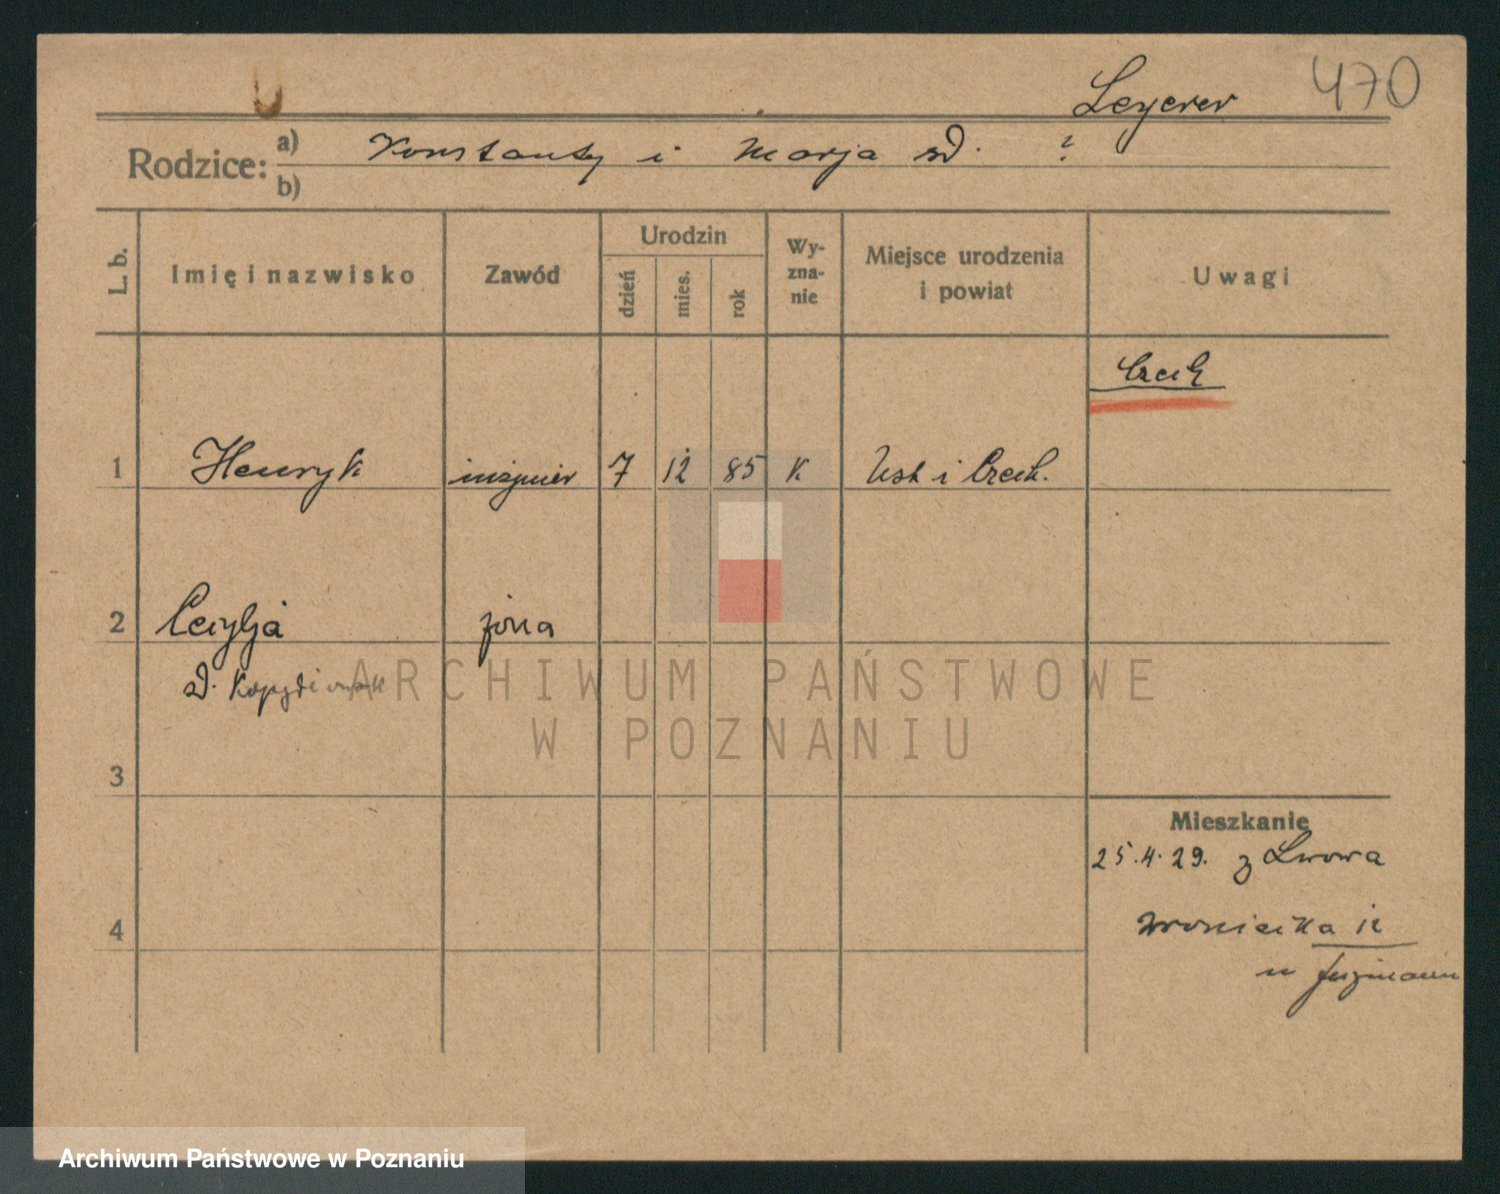 Leyerer 470
Rodzice: a) Konstanty i Marja zd. ?
b)
L. b.
Imię i nazwisko
Zawód
Urodzin
dzień
mies.
rok
Wy-
zna-
nie
Miejsce urodzenia
i powiat
Uwagi
Czech
1 Henryk inżynier 7 12 85 K Usk i Czech.
2 Cecylja żona
zd.
ARCHIWUM PAŃSTWOWE
W POZNANIU
3
Mieszkanie
25.4.29. z Lwowa
4 Wroniecka 12
u
Archiwum Państwowe w Poznaniu